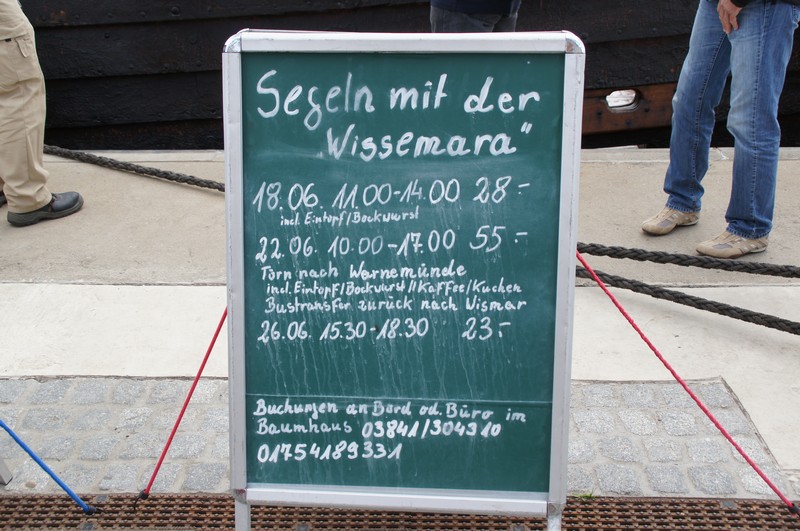 Segeln mit der
Wissemara"
18.06. 11.00-14.00 28-
incl. Eintopf/Bockwurst
22.06. 10.00-17.00 55-
Törn nach Warnemünde
incl. Eintopf/Bockwurst//Kaffee/Kuchen
Bustransfer zurück nach Wismar
26.06. 15.30-18.30 23-
Buchungen an Bord od. Büro im
Baumhaus 03841/304310
01754189331